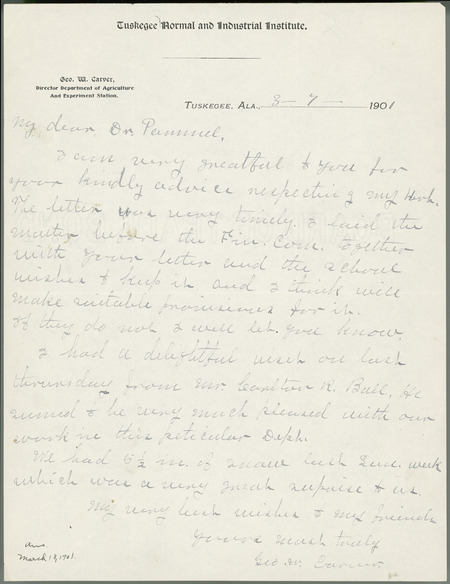 Tuskegee Normal and Industrial Institute.
Geo. W. Carver,
Director Department of Agriculture
And Experiment Station.
Tuskegee, Ala., 3 - 7 - 1901
My dear Dr. Pammel,
I am very greatful to you for
your kindly advice respecting my Herb.
The letter was very timely. I laid the
matter before the Fin. Com. together
with your letter and the school
wishes to keep it and I think will
make suitable provisions for it.
If they do not I will let you know.
I had a delightful visit on last
thursday from Mr Carlton R. Ball, He
seemed to be very much pleased with our
work in this peticular Dept.
We had 6½ in. of snow last week
which was a very great surprise to us.
My very best wishes to my friends
Yours most truly
Geo. W. Carver
Ans.
March 13, 1901.